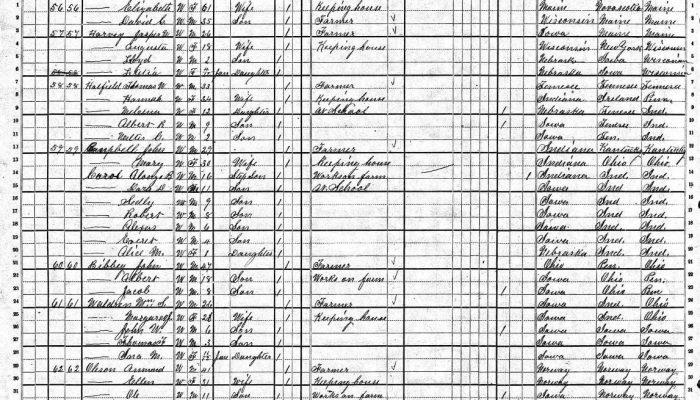 1 56 56 — Elizabeth W F 61 Wife 1 Keeping house Maine Maine
2 — David C. W M 35 Son Farmer Wisconsin Maine Maine
3 57 57 Harvey Jasper W M 26 1 Farmer Iowa Maine
4 — Augusta W F 18 Wife 1 Keeping house Wisconsin New York Wisconsin
5 — Floyd W M 2 Son Nebraska Wisconsin
6 — W F Jan Daughter Nebraska Iowa Wisconsin
7 58 58 Hatfield Thomas W. W M 33 1 Farmer
8 — Hannah W F 34 Wife 1 Keeping house Indiana Ireland
9 — W F 12 Daughter 1 At School 1 Nebraska Ind.
10 — Albert W M 9 Son 1 1 Iowa Ind.
11 — C. W M 2 Son 1 Iowa Ten. Ind.
12 59 59 Campbell John W M 29 1 Farmer Indiana Kentucky Kentucky
13 — Mary W F 30 Wife 1 Keeping house Indiana Ohio Ohio
14 Carol W M 16 Step Son 1 Works on farm 1 Indiana Ind. Ind.
15 — W M 11 Son 1 At School Iowa Ind. Ind.
16 — W M 9 Son 1 Iowa Ind. Ind.
17 — Robert W M 8 Son 1 Iowa Ind. Ind.
18 — W M 6 Son 1 Iowa Ind. Ind.
19 — Everet W M 4 Son 1 Iowa Ind. Ind.
20 — Alice M. W F 1 Daughter 1 Nebraska Ind. Ind.
21 60 60 Bibbey John W M 47 Farmer Ohio Pen. Ohio
22 — Albert W M 18 Son 1 Works on farm Iowa Ohio Pen.
23 — Jacob W M 8 Son 1 1 Iowa Ohio Pen.
24 61 61 Waldren Wm S. W M 26 1 Farmer Iowa Ind. Ohio
25 — W F 28 Wife 1 Keeping house Iowa Ind. Ohio
26 — John W. W M 6 Son 1 1 Iowa Iowa Iowa
27 — Thomas W M 3 Son 1 Iowa Iowa Iowa
28 — M. W F Jan Daughter 1 Iowa Iowa Iowa
29 62 62 Oleson W M 41 1 Farmer Norway Norway Norway
30 — Ellen W F 31 Wife 1 Keeping house Norway Norway Norway
31 — Ole W M 11 Son 1 Works on farm 1 Iowa Norway Norway